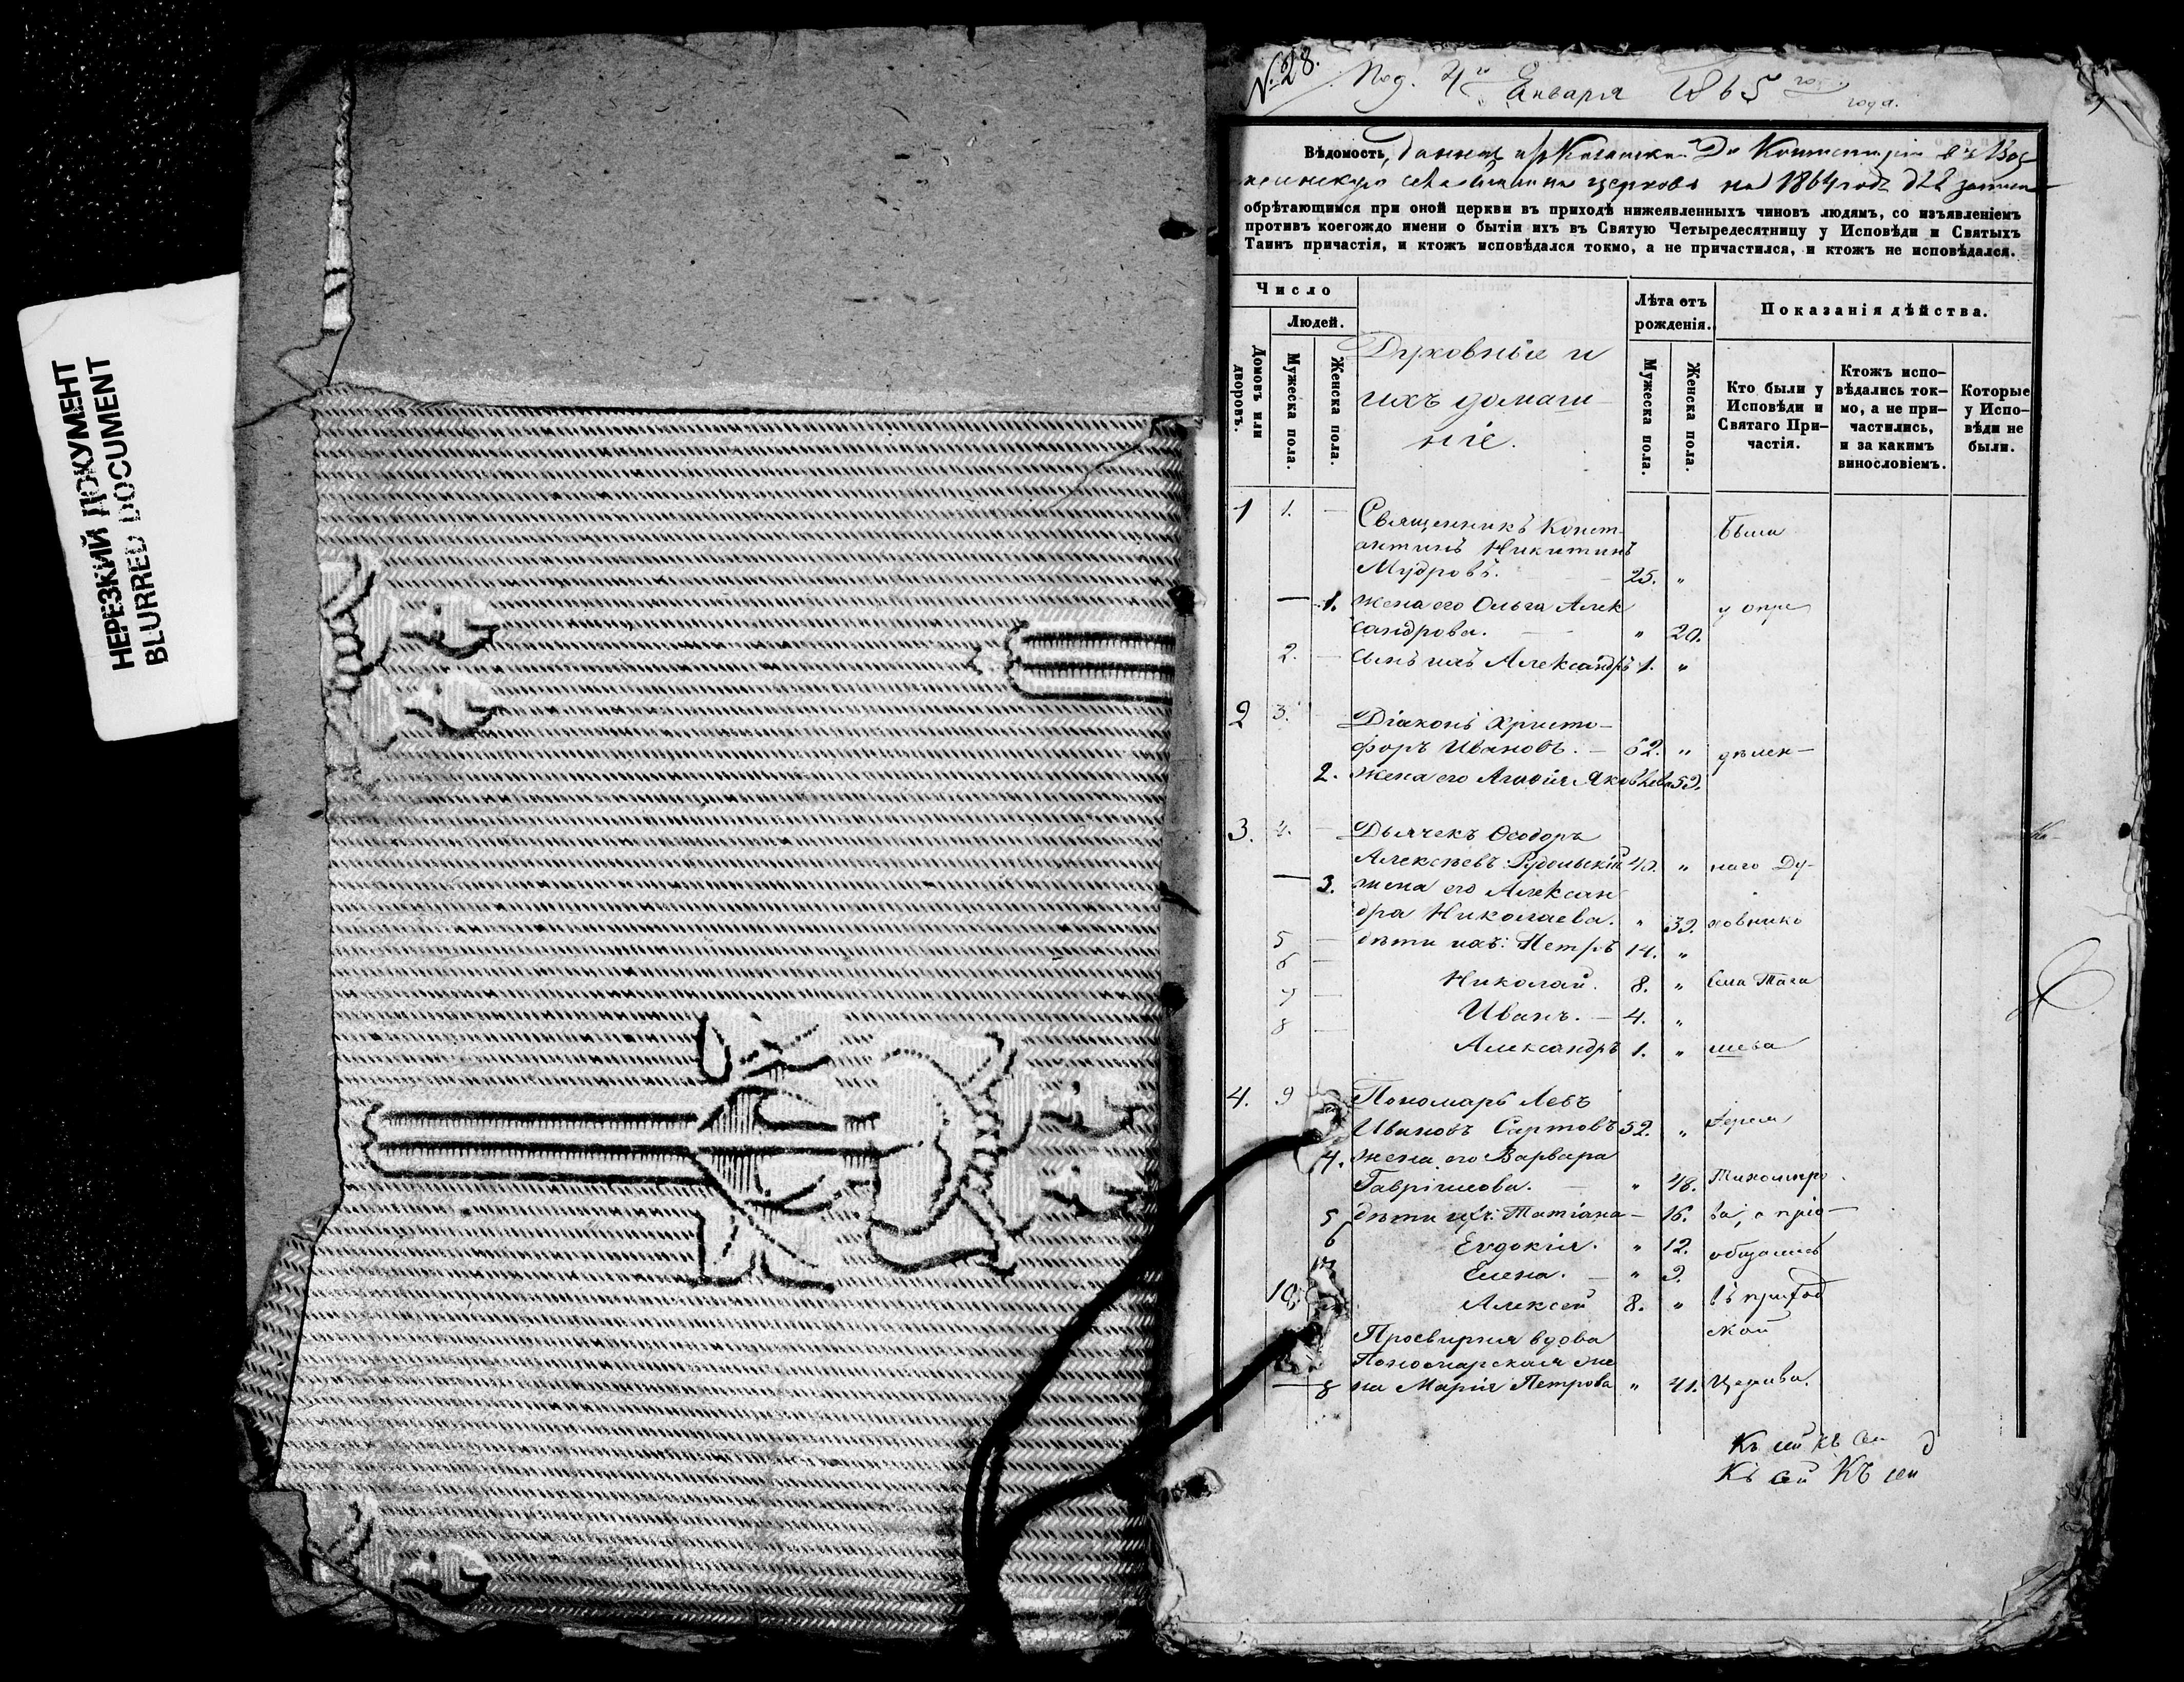 НЕРЕЗКИЙ ДОКУМЕНТ
BLURRED DOCUMENT
№ 28.
Под. 4го Января 1865 года.
Вѣдомость, данная изъ
церковь на 1864 годъ для записи
обрѣтающимся при оной церкви въ приходѣ нижеявленныхъ чиновъ людямъ, со изъявленіемъ
противъ коегождо имени о бытіи ихъ въ Святую Четыредесятницу у Исповѣди и Святыхъ
Таинъ причастія, и ктожъ исповѣдался токмо, а не причастился, и ктожъ не исповѣдался.
Число
Людей.
Домовъ или дворовъ.
Мужеска пола.
Женска пола.
Духовные и
ихъ домаш-
ніе.
Лѣта отъ
рожденія.
Мужеска пола.
Женска пола.
Показанія дѣйства.
Кто были у
Исповѣди и
Святаго При-
частія.
Ктожъ испо-
вѣдались ток-
мо, а не при-
частились,
и за какимъ
винословіемъ.
Которые
у Испо-
вѣди не
были.
1 1. — Священникъ Конст- Были
антинъ Никитинъ
Мудровъ. 25. "
— 1. жена его Ольга Алек у опре
сандрова. " 20.
2. — сынъ ихъ Александръ 1. "
2 3. Діаконъ Христо-
форъ Ивановъ. — 62. " дѣлен-
2. жена его Яковлева 59.
3. 4. — Дьячекъ Ѳеодоръ
Алексѣевъ 40. " наго Ду-
— 3. жена его Алексан
дра Николаева. " 39. ховника
5 — дѣти ихъ: Петръ 14. "
6 — Николай. 8. " села
7 — Иванъ. — 4. "
8 — Александръ 1. " шева
4. 9 Пономарь Левъ
Ивановъ Сартовъ 52. " Іерея
4. жена его Варвара
Гавріилова. — " 48. Тихомиро-
5 дѣти ихъ: Татіана — 16. ва, а пріо-
6 Евдокія. " 12. общались
7 Елена. — " 9.
10 Алексей 8. " въ приход
Просвирня вдова ской
Пономарская же
— 8 на Марія Петрова " 41. Церкви.
Къ сей къ сей
Къ сей Къ сей